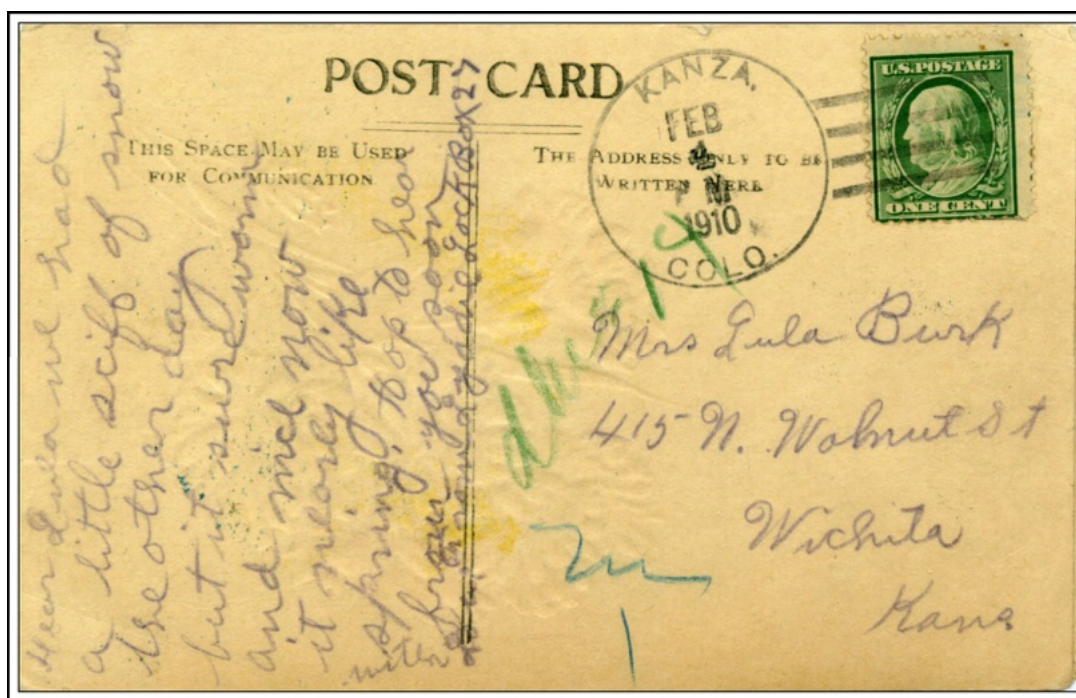 POST CARD
THIS SPACE MAY BE USED
FOR COMMUNICATION
THE ADDRESS ONLY TO BE
WRITTEN HERE
KANZA,
FEB
PM
1910
COLO.
U.S. POSTAGE
ONE CENT
Dear Lula we had
a little sciff of snow
the other day
but it sure warm
and nice now
it nearly like
spring. hop to hear
from you soon
Lock Box 27
Mrs Lula Burk
415 N. Walnut St
Wichita
Kans